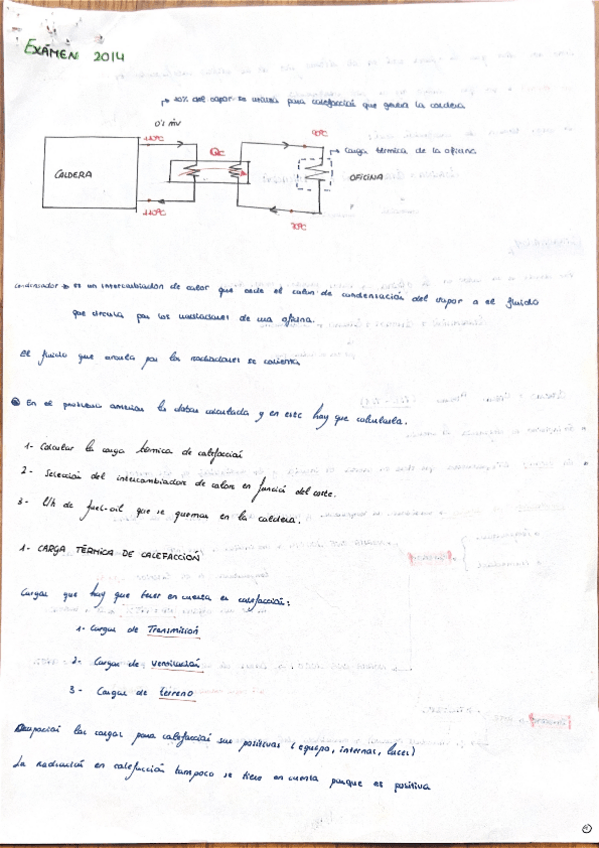 EXÁMEN 2014
10% del vapor se utiliza para calefacción que genera la caldera
0'1 ṁv
110ºC
Qc
90ºC
carga térmica de la oficina
CALDERA
OFICINA
110ºC
70ºC
Condensador → es un intercambiador de calor que cede el calor de condensación del vapor a el fluido
que circula por los radiadores de una oficina.
El fluido que circula por los radiadores se calienta
En el problema anterior la daban calculada y en este hay que calcularla.
1- Calcular la carga térmica de calefacción
2- Selección del intercambiador de calor en función del coste.
3- L/h de fuel-oil que se queman en la caldera.
1- CARGA TÉRMICA DE CALEFACCIÓN
Cargas que hay que tener en cuenta en calefacción:
1- Cargas de Transmisión
2- Cargas de ventilación
3- Cargas de terreno
Ocupación las cargas para calefacción son positivas (equipo, internas, luces)
La radiación en calefacción tampoco se tiene en cuenta porque es positiva